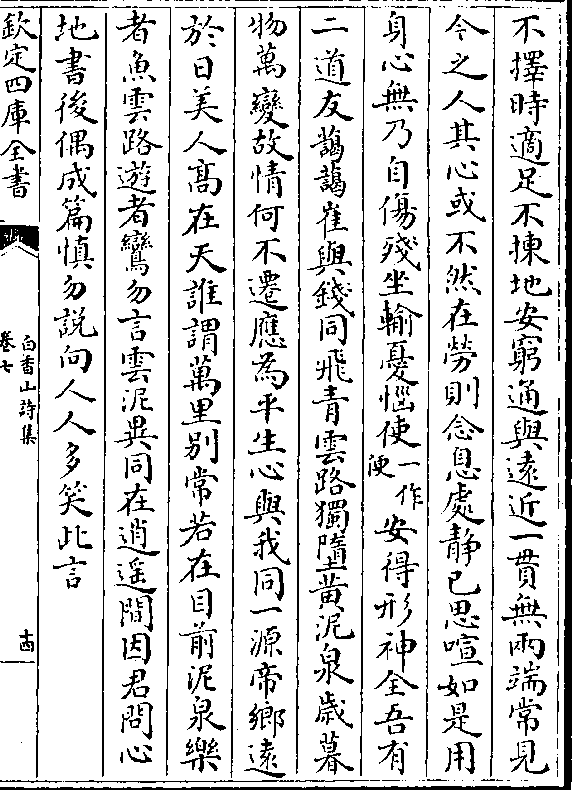 不擇時適足不揀地安窮通與遠近一貫無兩端常見
今之人其心或不然在勞則念息處靜已思喧如是用
身心無乃自傷殘坐輸憂惱使一作便安得形神全吾有
二道友藹藹崔與錢同飛青雲路獨墮黄泥泉歲暮
物萬變故情何不遷應為平生心與我同一源帝鄉逺
於日美人髙在天誰謂萬里别常若在目前泥泉樂
者魚雲路遊者鸞勿言雲泥異同在逍遥間因君問心
地書後偶成篇慎勿説向人人多笑此言
欽定四庫全書
白香山詩集
卷七
十四